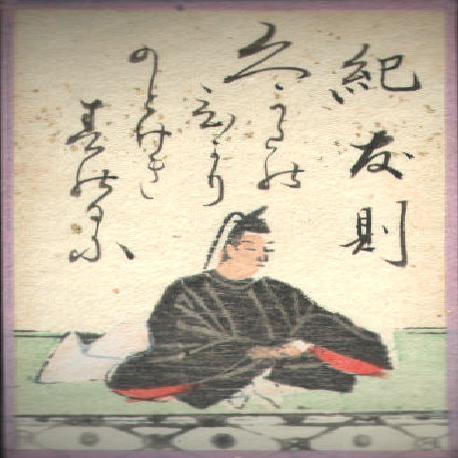 紀友則
久かたの
ひかり
のとけき
春の日に